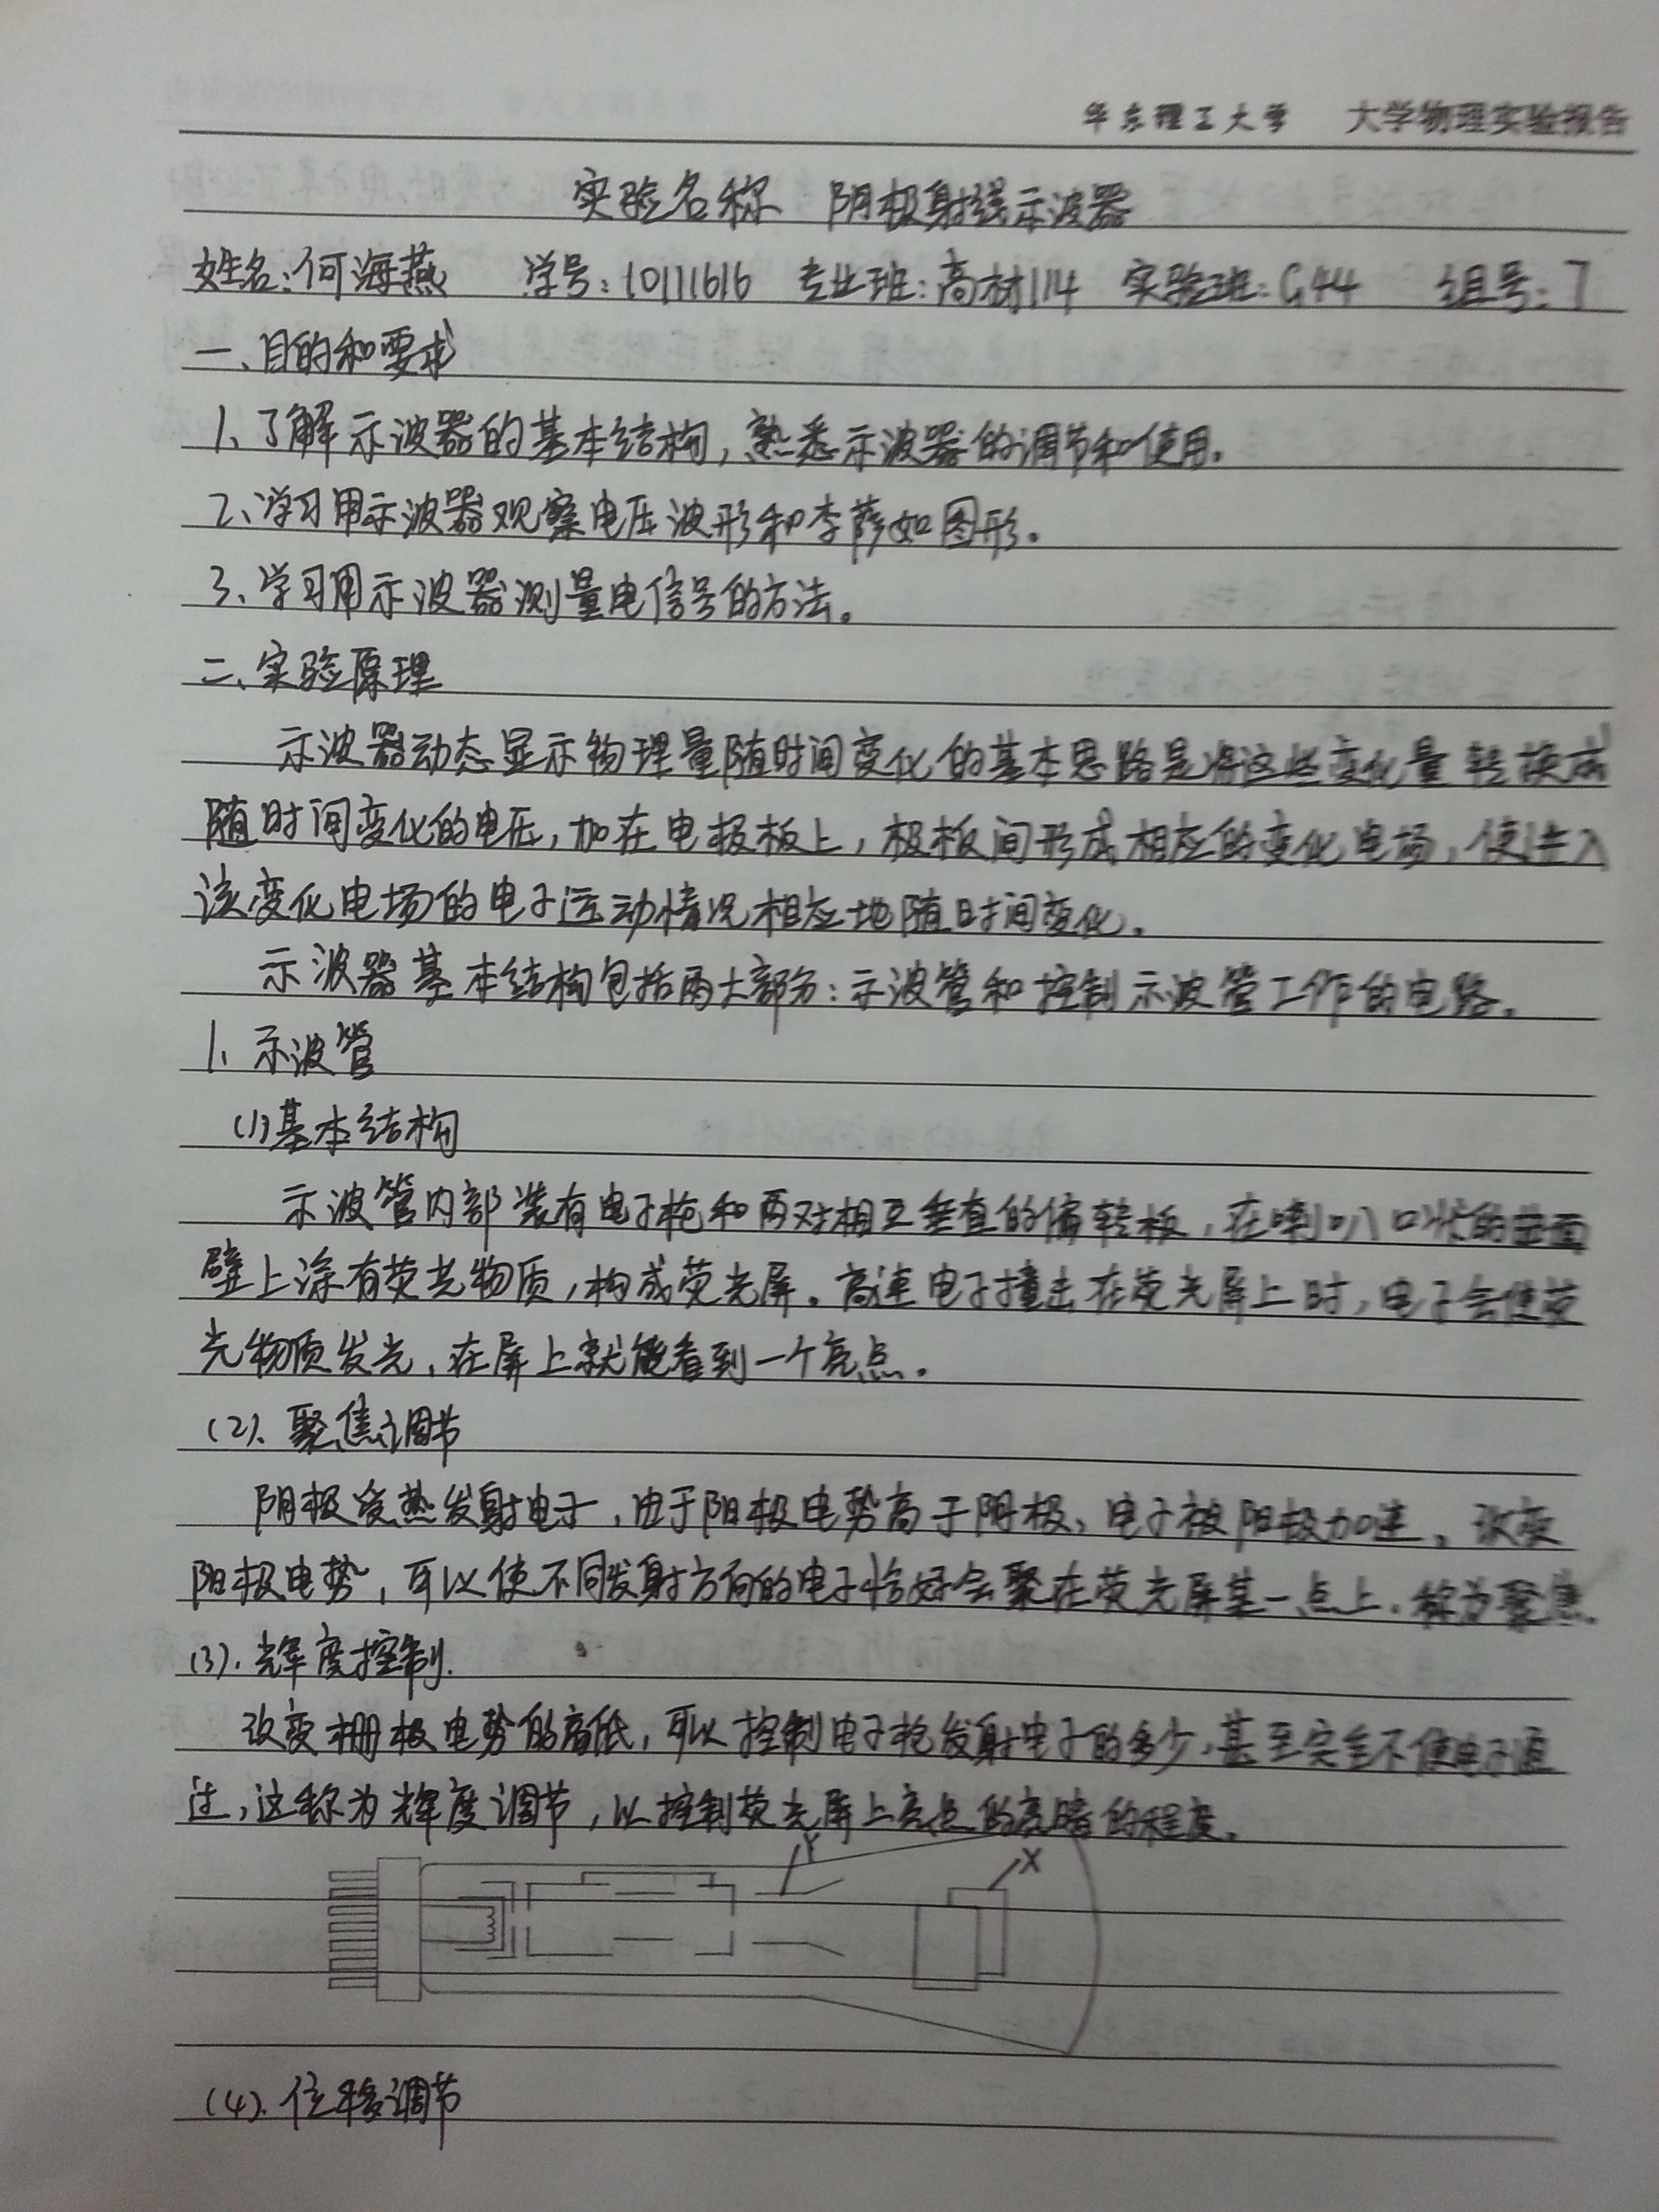 华东理工大学 大学物理实验报告
实验名称 阴极射线示波器
姓名:何海燕 学号:10111616 专业班:高材114 实验班:G44 组号:7
一、目的和要求
1、了解示波器的基本结构,熟悉示波器的调节和使用。
2、学习用示波器观察电压波形和李萨如图形。
3、学习用示波器测量电信号的方法。
二、实验原理
示波器动态显示物理量随时间变化的基本思路是将这些变化量转换成
随时间变化的电压,加在电极板上,极板间形成相应的变化电场,使进入
该变化电场的电子运动情况相应地随时间变化。
示波器基本结构包括两大部分:示波管和控制示波管工作的电路。
1、示波管
(1)基本结构
示波管内部装有电子枪和两对相互垂直的偏转板,在喇叭口状的曲面
壁上涂有荧光物质,构成荧光屏。高速电子撞击在荧光屏上时,电子会使荧
光物质发光,在屏上就能看到一个亮点。
(2).聚焦调节
阴极受热发射电子,由于阳极电势高于阴极,电子被阳极加速。改变
阳极电势,可以使不同发射方向的电子恰好会聚在荧光屏某一点上,称为聚焦
(3).辉度控制.
改变栅极电势的高低,可以控制电子枪发射电子的多少,甚至完全不使电子通
过,这称为辉度调节,以控制荧光屏上亮点的亮暗的程度。
Y
X
(4).位移调节